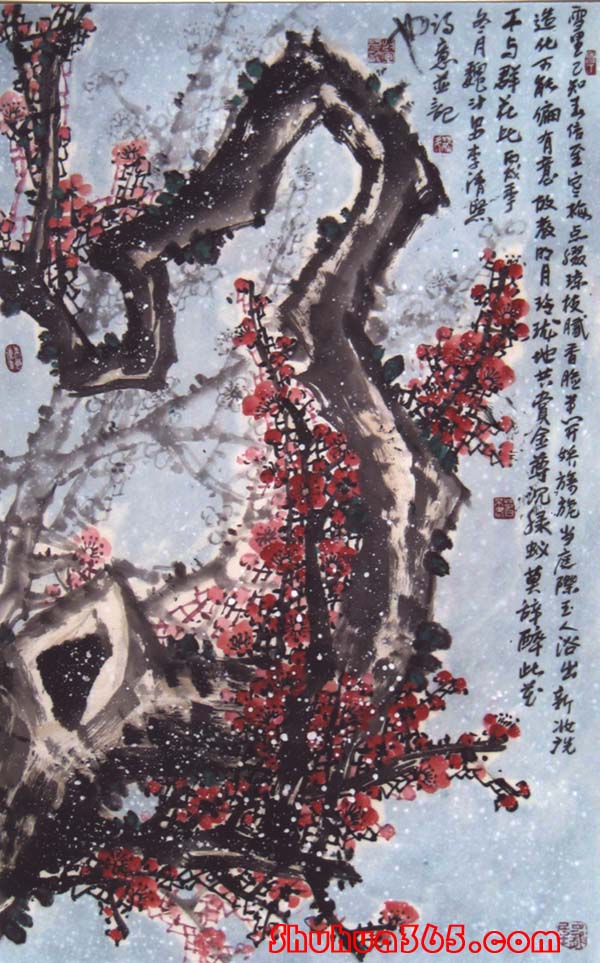 雪里已知春信至寒梅点缀琼枝腻香脸半开娇旖旎当庭际玉人浴出新妆洗
造化可能偏有意故教明月玲珑地共賞金尊沉绿蚁莫辞醉此花
不与群花比 丙戌年
冬月魏 李清照
诗意并记
Shuhua365.com